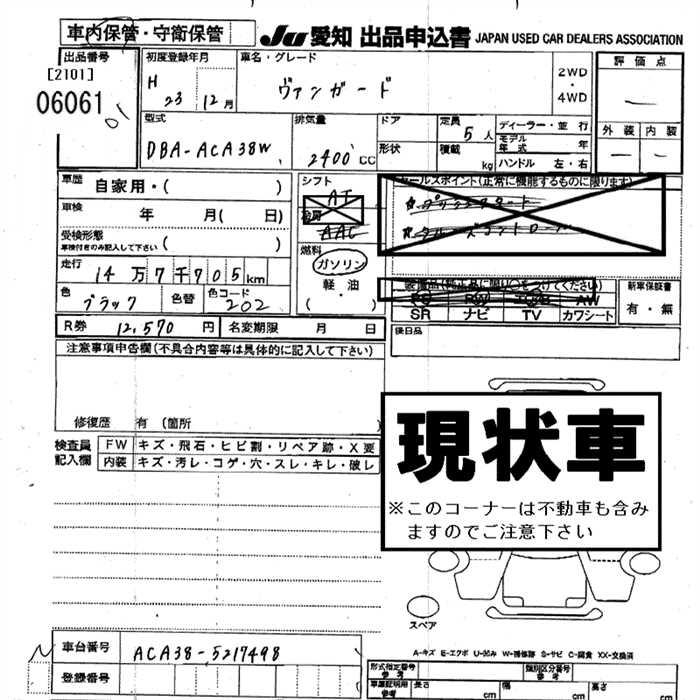 車内保管・守衛保管
JU 愛知 出品申込書 JAPAN USED CAR DEALERS ASSOCIATION
出品番号
[2101]
06061
01
初度登録年月
H 23 12月
車名・グレード
ヴァンガード
2WD
・
4WD
評価点
—
外装 内装
— —
型式
DBA-ACA38W
排気量
2400 CC
ドア
形状
定員
5人
積載
kg
ディーラー・並行
モデル年式 年
ハンドル 左・右
車歴
自家用・( )
車検
年 月( 日)
受検形態
車検付きのみ記入して下さい ( )
走行
14万7千705km
色
ブラック
色替
色コード
202
シフト
AT
冷房
AAC
燃料
ガソリン
軽油
・
セールスポイント(正常に機能するものに限ります)
装備品(純正品に限り○をつけてください)
PS PW AW
SR ナビ TV カワシート
新車保証書
有・無
R券 12,570円 名変期限 月 日
後日品
注意事項申告欄(不具合内容等は具体的に記入して下さい)
修復歴 有(箇所 )
検査員記入欄
FW キズ・飛石・ヒビ割・リペア跡・X要
内装 キズ・汚レ・コゲ・穴・スレ・キレ・破レ
現状車
※このコーナーは不動車も含み
ますのでご注意下さい
スペア
A-キズ E-エクボ U-凹み W-補修跡 S-サビ C-腐食 XX-交換済
車台番号
ACA38-5217498
登録番号
形式指定番号
参考
類別区分番号
参考
車庫証明用
参考
長さ cm
幅 cm
高さ cm